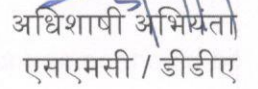 अधिशाषी अभियंता
एसएमसी / डीडीए